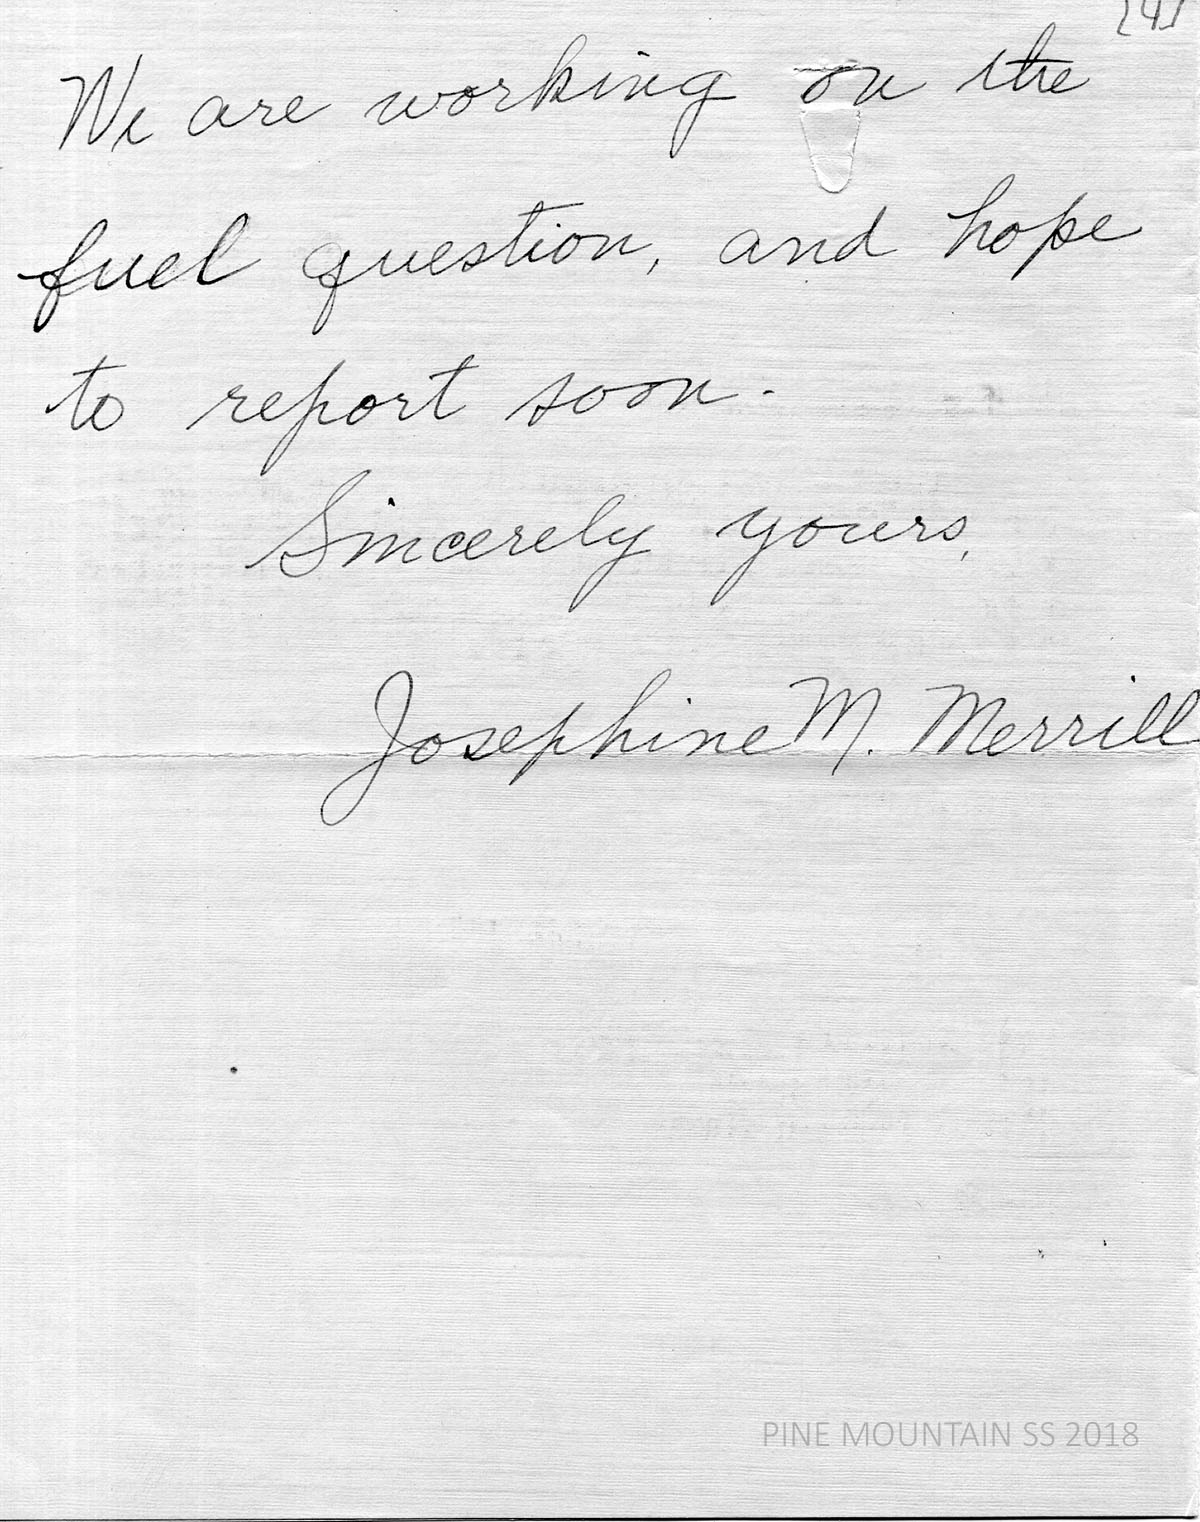 [4]
We are working on the
fuel question, and hope
to report soon.
Sincerely yours,
Josephine M. Merrill
PINE MOUNTAIN SS 2018